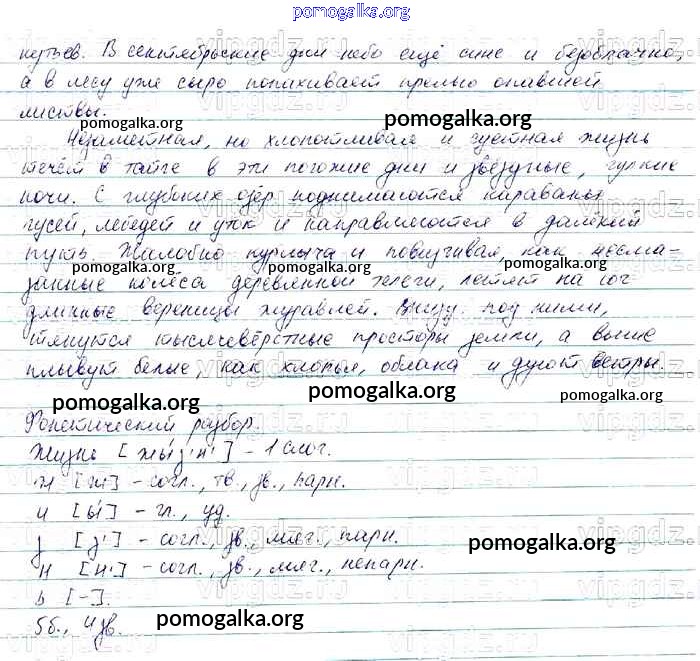 pomogalka.org
кустьев. В сентябрьские дни небо ещё сине и безоблачно,
а в лесу уже сыро попахивает прелью опавшей
листвы.
pomogalka.org
pomogalka.org
Незаметная, но хлопотливая и суетная жизнь
течёт в тайге в эти погожие дни и звёздные, гулкие
ночи. С глубоких озёр поднимаются караваны
гусей, лебедей и уток и направляются в далёкий
путь. Жалобно курлыча и повизгивая, как несма-
pomogalka.org pomogalka.org pomogalka.org
занные колёса деревенской телеги, летят на юг
длинные вереницы журавлей. Внизу под ними,
тянутся тысячевёрстные просторы земли, а выше
плывут белые, как хлопья, облака и дуют ветры.
pomogalka.org pomogalka.org pomogalka.org
Фонетический разбор.
Жизнь [жы́з'н'] – 1 слог.
ж [ж] – согл., тв., зв., парн.
и [ы́] – гл., уд.
з [з'] – согл., зв., мяг., парн.
pomogalka.org
н [н'] – согл., зв., мяг., непарн.
ь [–].
5б., 4 зв.
pomogalka.org